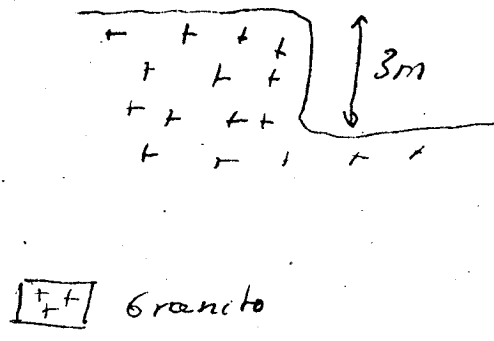 3m
Granito